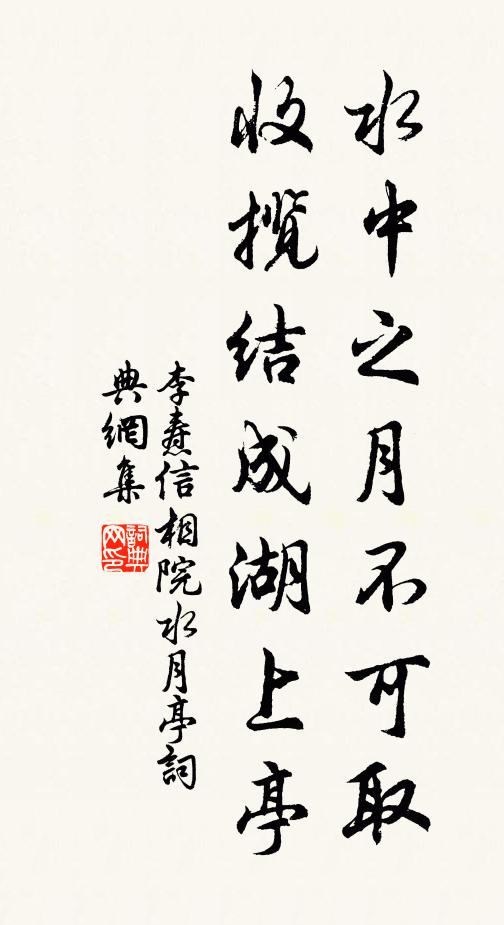 水中之月不可取
收攬結成湖上亭
李燾信相院水月亭詞
典網集
詞典網印